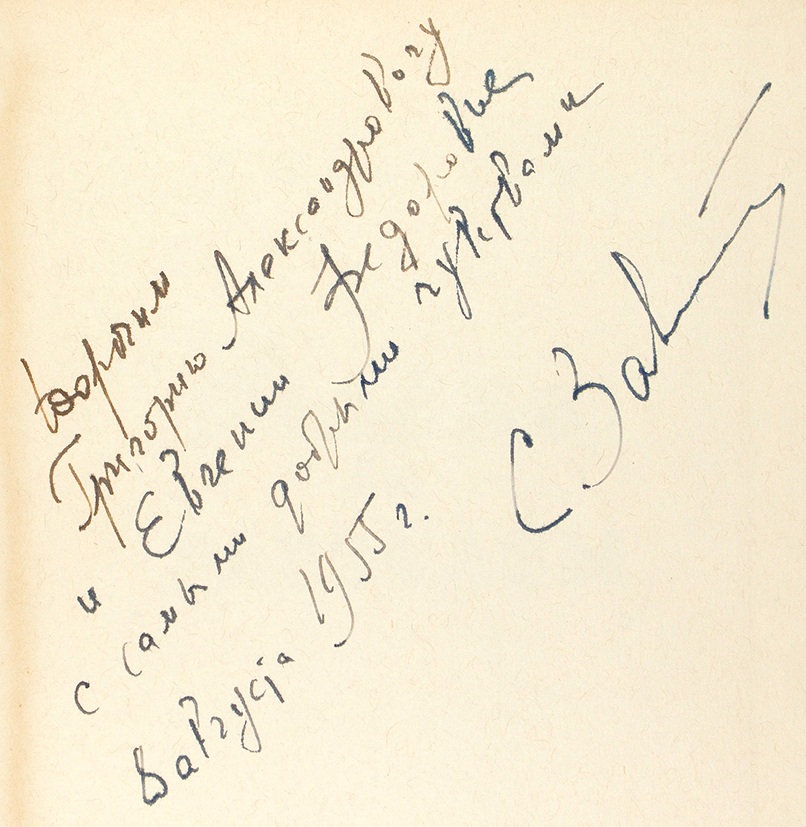 Дорогим
Григорию Александровичу
и Евгении Федоровне
с самыми добрыми чувствами
8 августа 1955 г.
С.